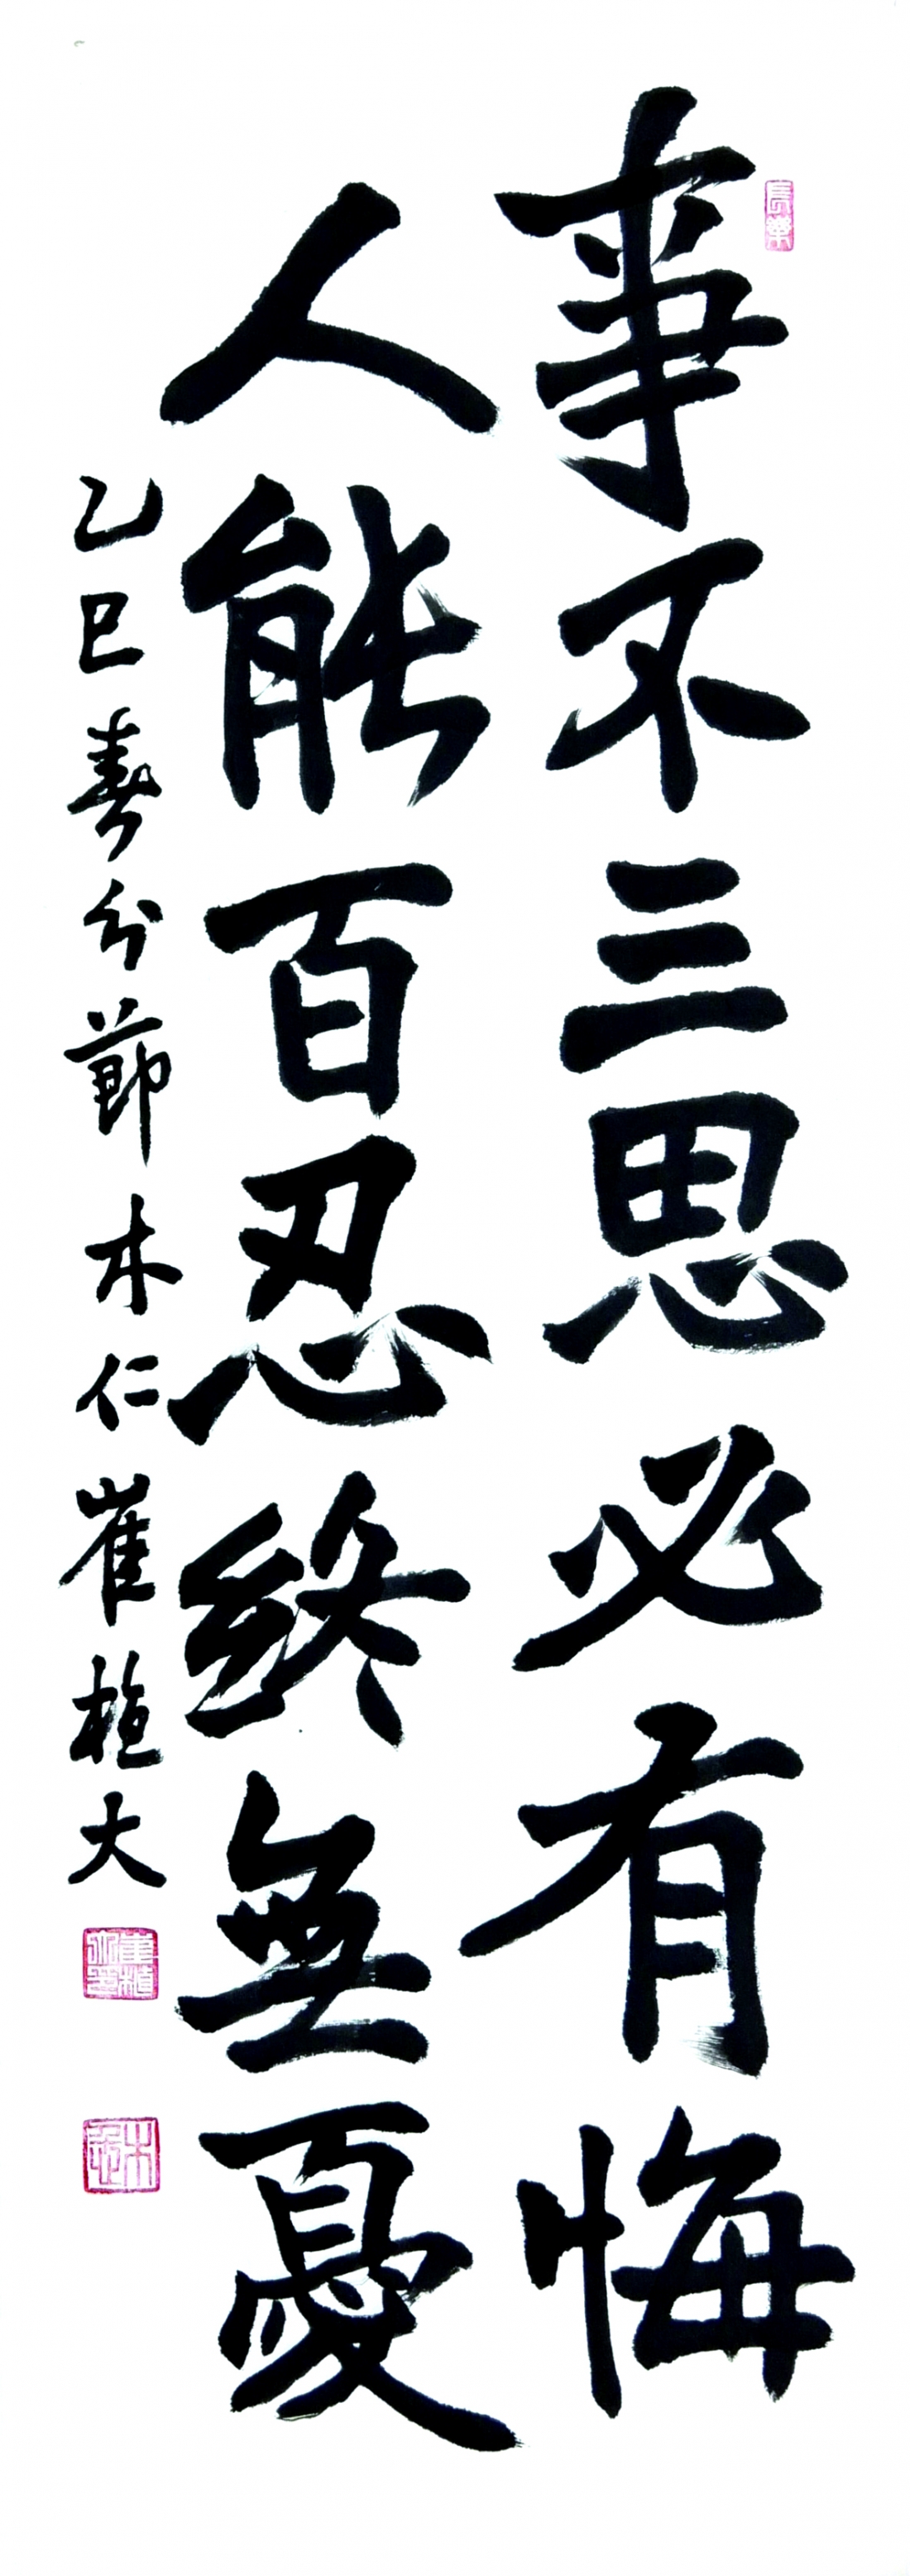 事不三思必有悔
人能百忍終無憂
乙巳春分節木仁崔植大
長樂
崔植大印
木仁